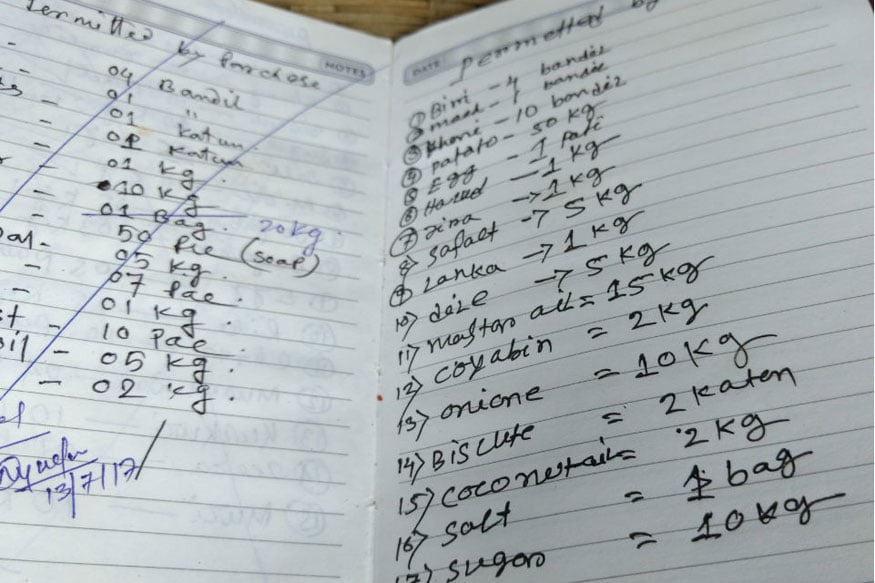 Permitted by Porchose
NOTES
04 Bandil
01 "
01 Katun
01 Katun
01 kg.
10 kg
01 Bag. 20kg.
50 Pic (soap)
05 kg.
07 Pac.
01 kg.
10 Pac
05 kg.
02 kg
13/7/17
DATE
permetted by
① Biri - 4 bandil
② - 1 bandil
③ Khoni - 10 bandil
④ patato - 50 kg
⑤ Egg - 1 pati
⑥ Harud - 1 kg
⑦ zina → 1 kg
8) safact → 5 kg
9) Lanka → 1 kg
10) dale → 5 kg
11) mastaro ail = 15 kg
12) coyabin = 2 kg
13) onione = 10 kg
14) Biscute = 2 katen
15) coconetail = 2 kg
16) salt = 1 bag
17) sugar = 10 kg